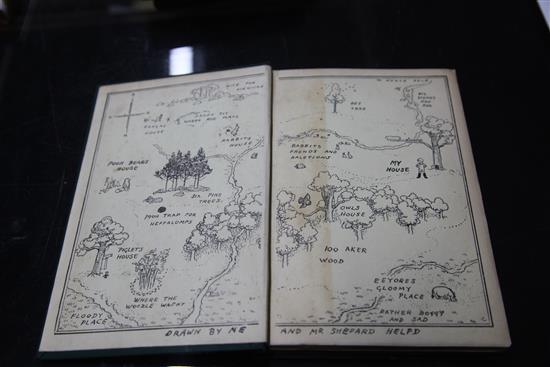 NICE FOR
PICNICKS
KANGAS
HOUSE
SANDY PIT
WHERE ROO PLAYS
RABBITS
HOUSE
POOH BEARS
HOUSE
SIX PINE
TREES.
POOH TRAP FOR
HEFFALUMPS
PIGLETS
HOUSE
WHERE THE
WOOZLE WASNT
FLOODY
PLACE
DRAWN BY ME
TO NORTH POLE
BIG
STONES
AND
ROX
BEE
TREE
RABBITS
FRENDS AND
RALETIONS
MY
HOUSE
OWLS
HOUSE
100 AKER
WOOD
EEYORES
GLOOMY
PLACE
RATHER BOGGY
AND SAD
AND MR SHEPARD HELPD